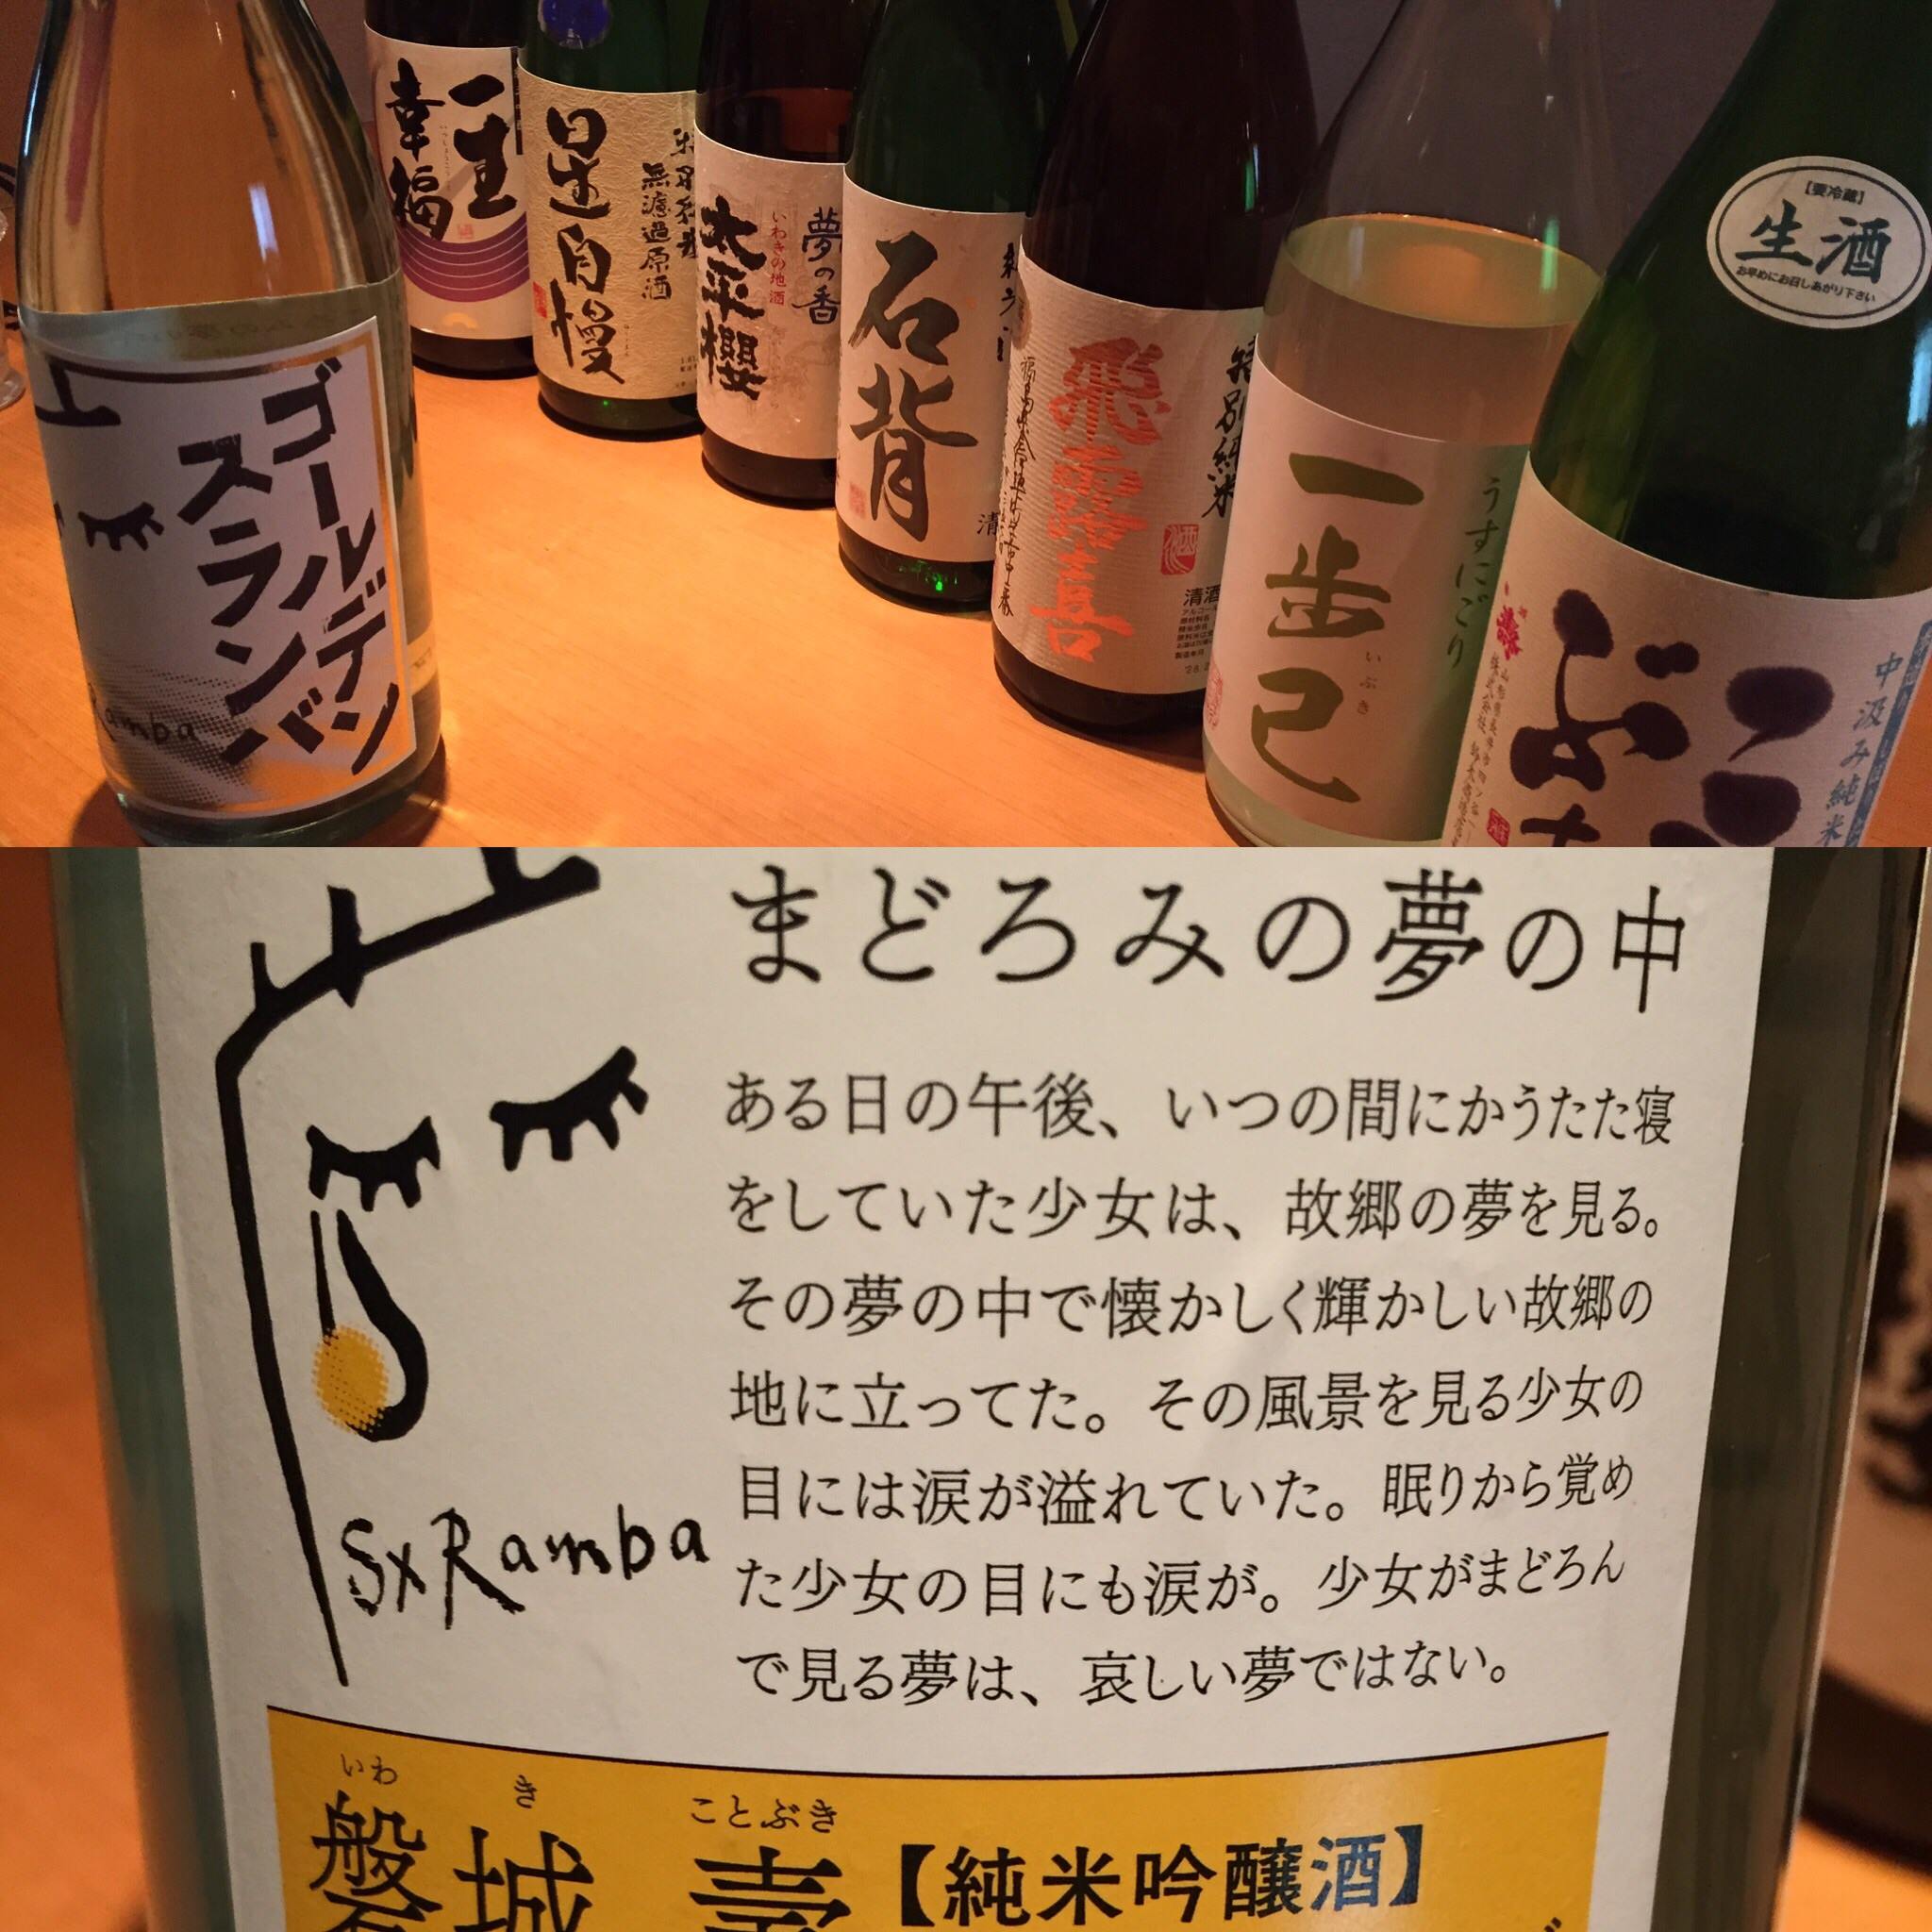 ゴールデン
スランバ
Ramba
一生
幸福
無濾過原酒
星自慢
夢の香
いわきの地酒
太平櫻
石背
清
特別純米
飛露喜
清酒
うすにごり
一歩己
いぶき
【要冷蔵】
生酒
お早めにお召しあがり下さい
中汲み純米
ぶ
まどろみの夢の中
ある日の午後、いつの間にかうたた寝
をしていた少女は、故郷の夢を見る。
その夢の中で懐かしく輝かしい故郷の
地に立ってた。その風景を見る少女の
目には涙が溢れていた。眠りから覚め
た少女の目にも涙が。少女がまどろん
で見る夢は、哀しい夢ではない。
SxRamba
いわ き ことぶき
磐城 壽【純米吟醸酒】